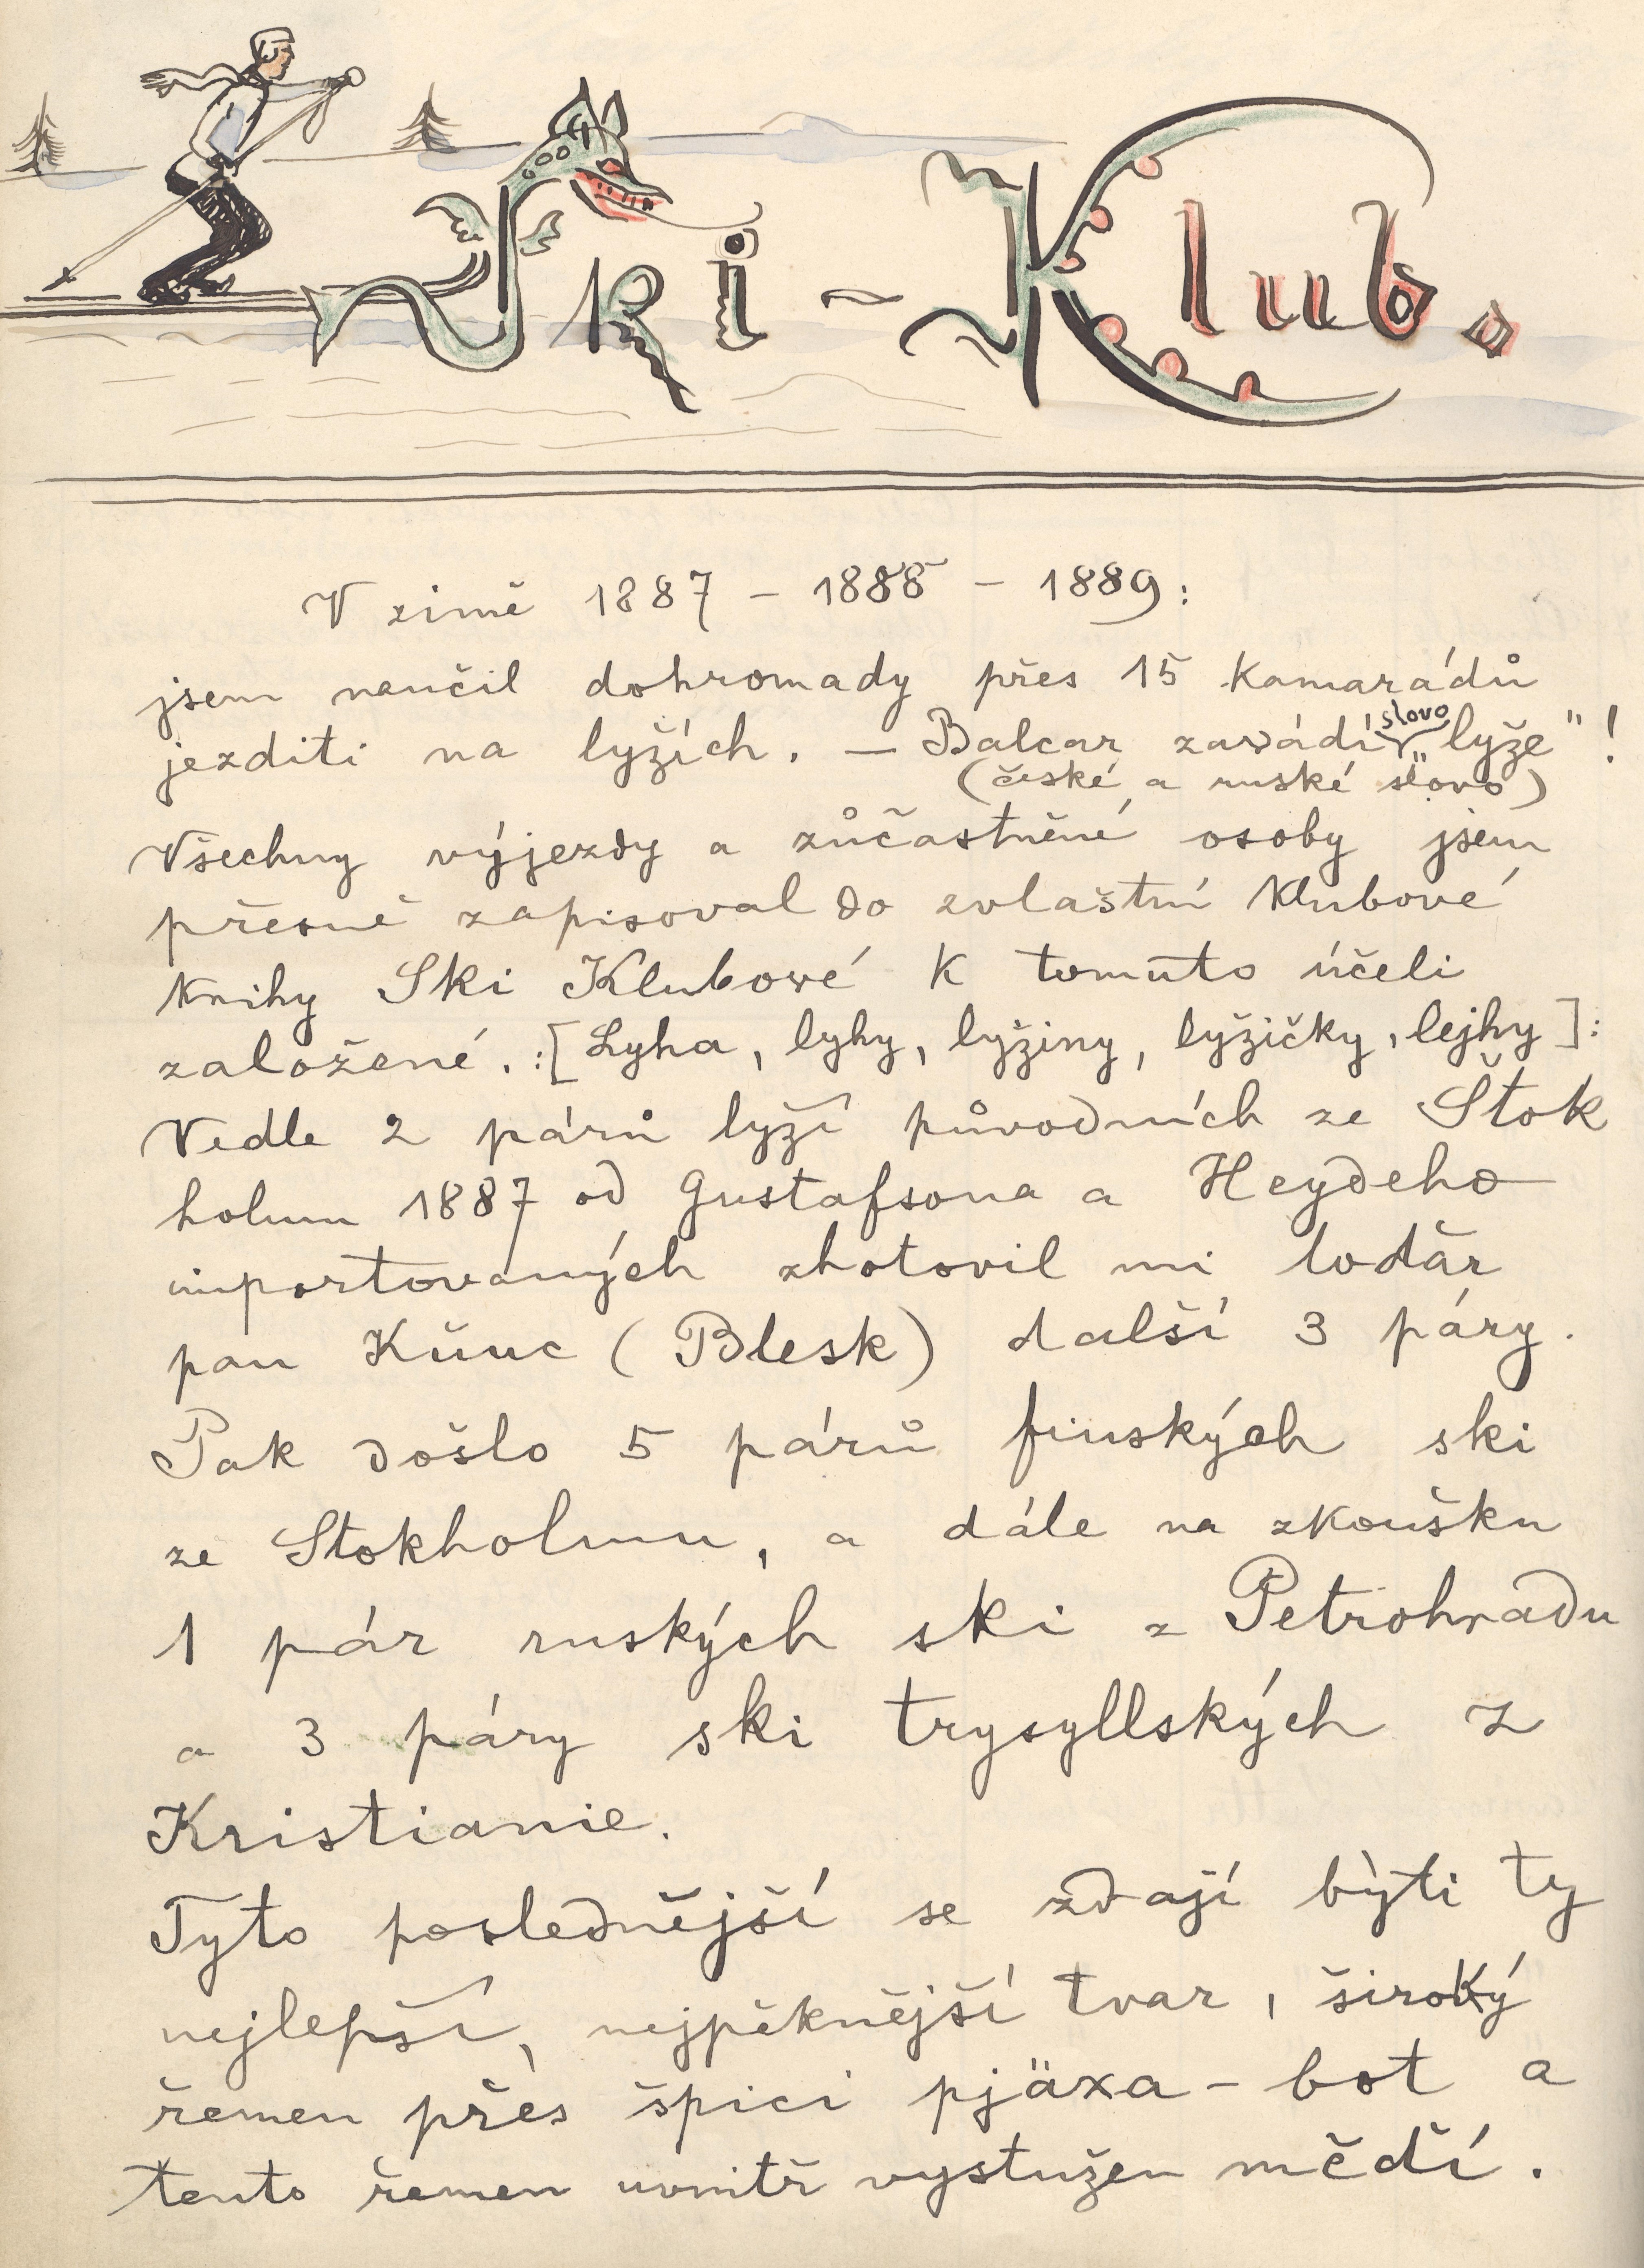 Ski - Klub.
V zimě 1887 - 1888 - 1889:
jsem naučil dohromady přes 15 kamarádů
jezditi na lyžích. — Balcar zavádí slovo „lyže"!
(české a ruské slovo)
Všechny výjezdy a zůčastněné osoby jsem
přesně zapisoval do zvlaštní klubové
knihy Ski Klubové k tomuto účeli
založené. :[Lyha, lyhy, lyžiny, lyžičky, lejhy]:
Vedle 2 párů lyží původních ze Štok
holmu 1887 od Gustafsona a Heydeho
importovaných zhotovil mi loďař
pan (Blesk) další 3 páry.
Pak došlo 5 párů finských ski
ze Stokholmu, a dále na zkoušku
1 pár ruských ski z Petrohradu
a 3 páry ski trysyllských z
Kristianie.
Tyto poslednější se zdají býti ty
nejlepší, nejpěknější tvar, široký
řemen přes špici pjäxa - bot a
tento řemen uvnitř vystužen mědí.